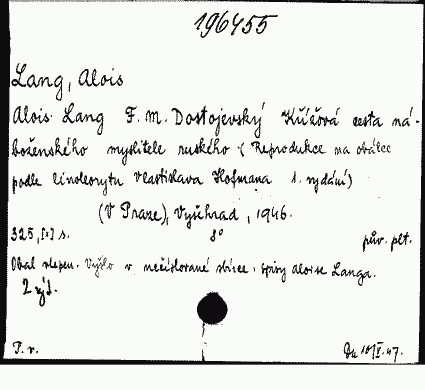 196455
Lang, Alois
Alois Lang F. M. Dostojevský Křížová cesta ná-
boženského myslitele ruského (Reprodukce na obálce
podle linoleorytu Vlastislava Hofmana 1. vydání)
(V Praze), Vyšehrad, 1946.
325, [1] s. 8° pův. plt.
Obal vlepen. Vyšlo v nečíslované sbírce. Spisy Aloise Langa.
2 výt.
P. v. Du 10/V. 47.